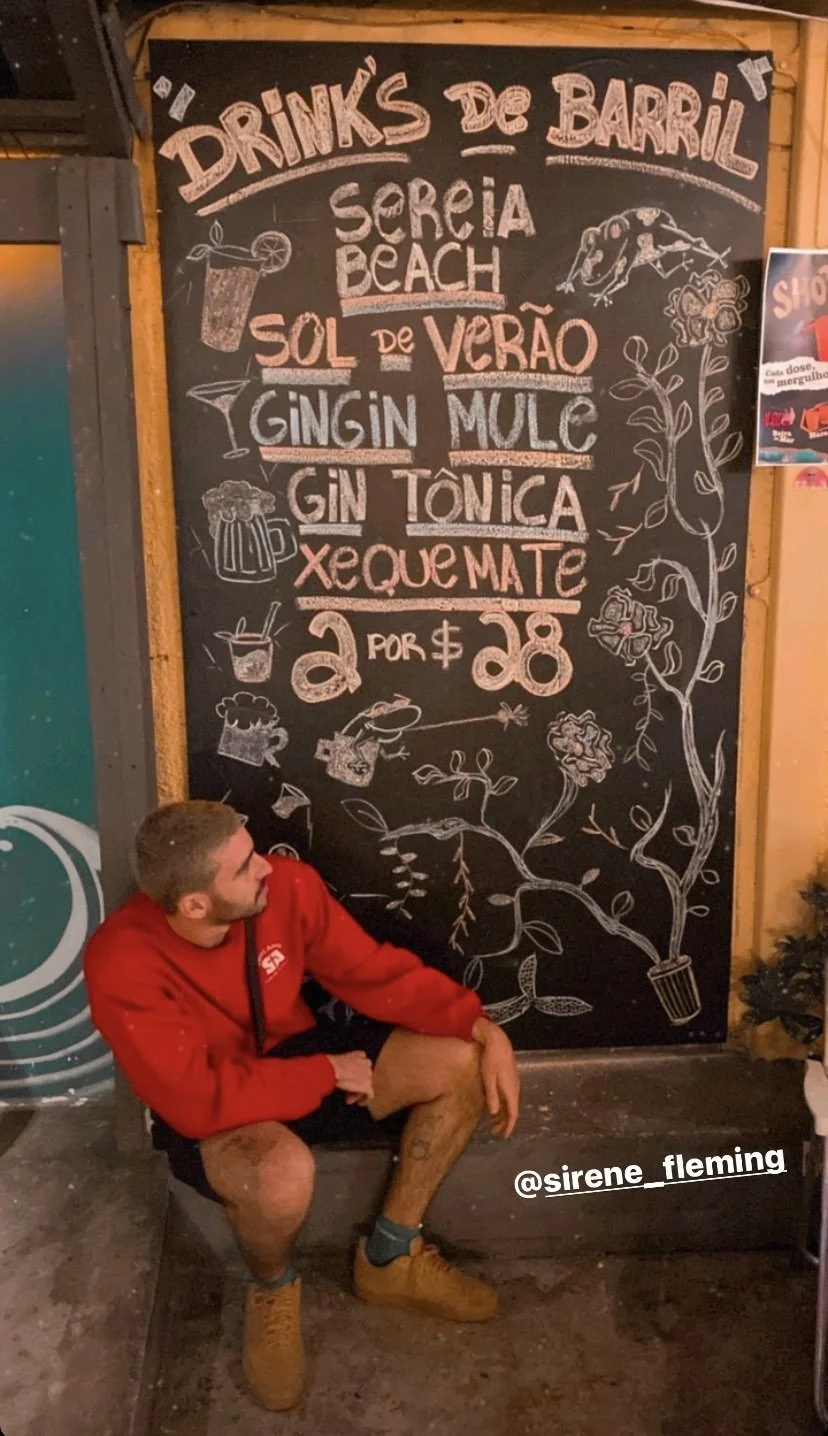 DRINK'S De BARRiL
SeReiA
BEACH
SOL De VeRÃO
GiNGiN MULe
GiN TÔNiCA
XeQUeMATe
2 POR $ 28
SHOT
Cada dose,
um mergulho
Beira
Mar
SA
@sirene_fleming